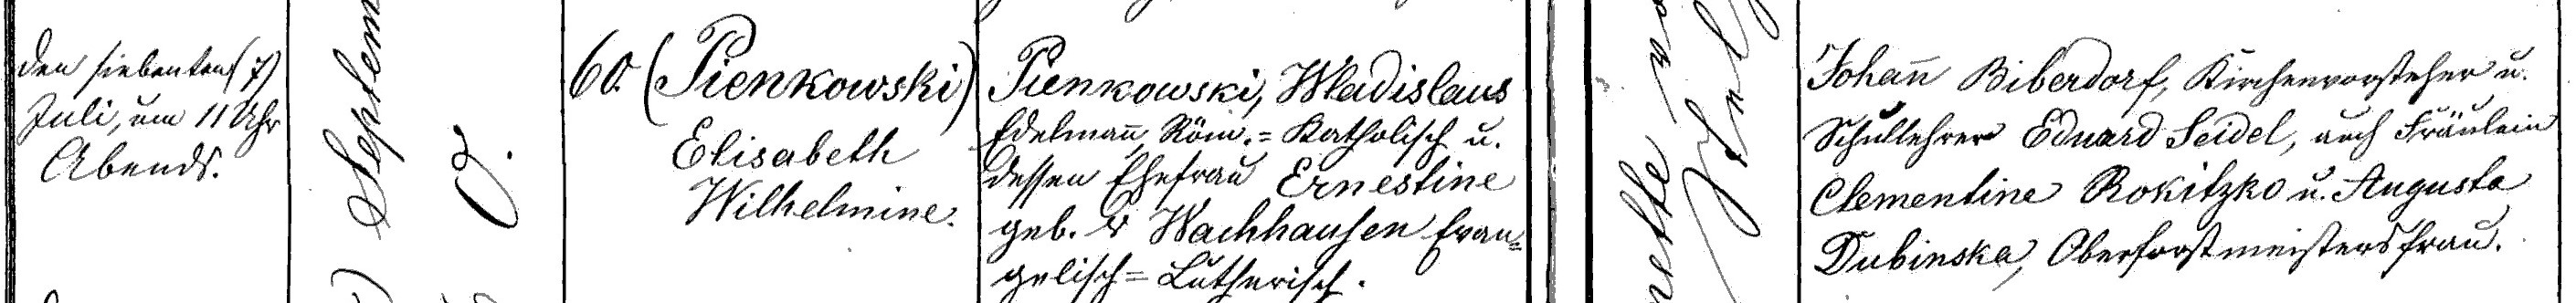 den siebenten (7)
Juli, um 11 Uhr
Abends.
Septem
60. (Pienkowski)
Elisabeth
Wilhelmine.
Pienkowski, Wladislaus
Edelmann, Röm.= Katholisch u.
dessen Ehefrau Ernestine
geb. v Wachhausen Evan=
gelisch= Lutherisch.
Johann Biberdorf, Kirchenvorsteher u.
Schullehrer Eduard Seidel, auch Fräulein
Clementine Rokitzko u. Augusta
Dubinska, Oberforstmeistersfrau.